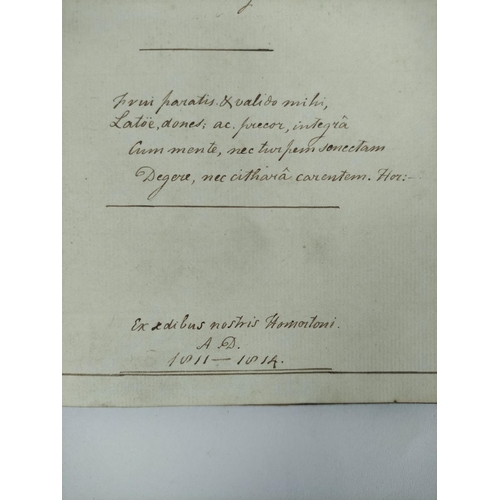 Frui paratis & valido mihi,
Latöe, dones; ac, precor, integrâ
Cum mente, nec turpem senectam
Degere, nec citharâ carentem. Hor:-
Ex ædibus nostris Homertoni.
A.D.
1811-1814.